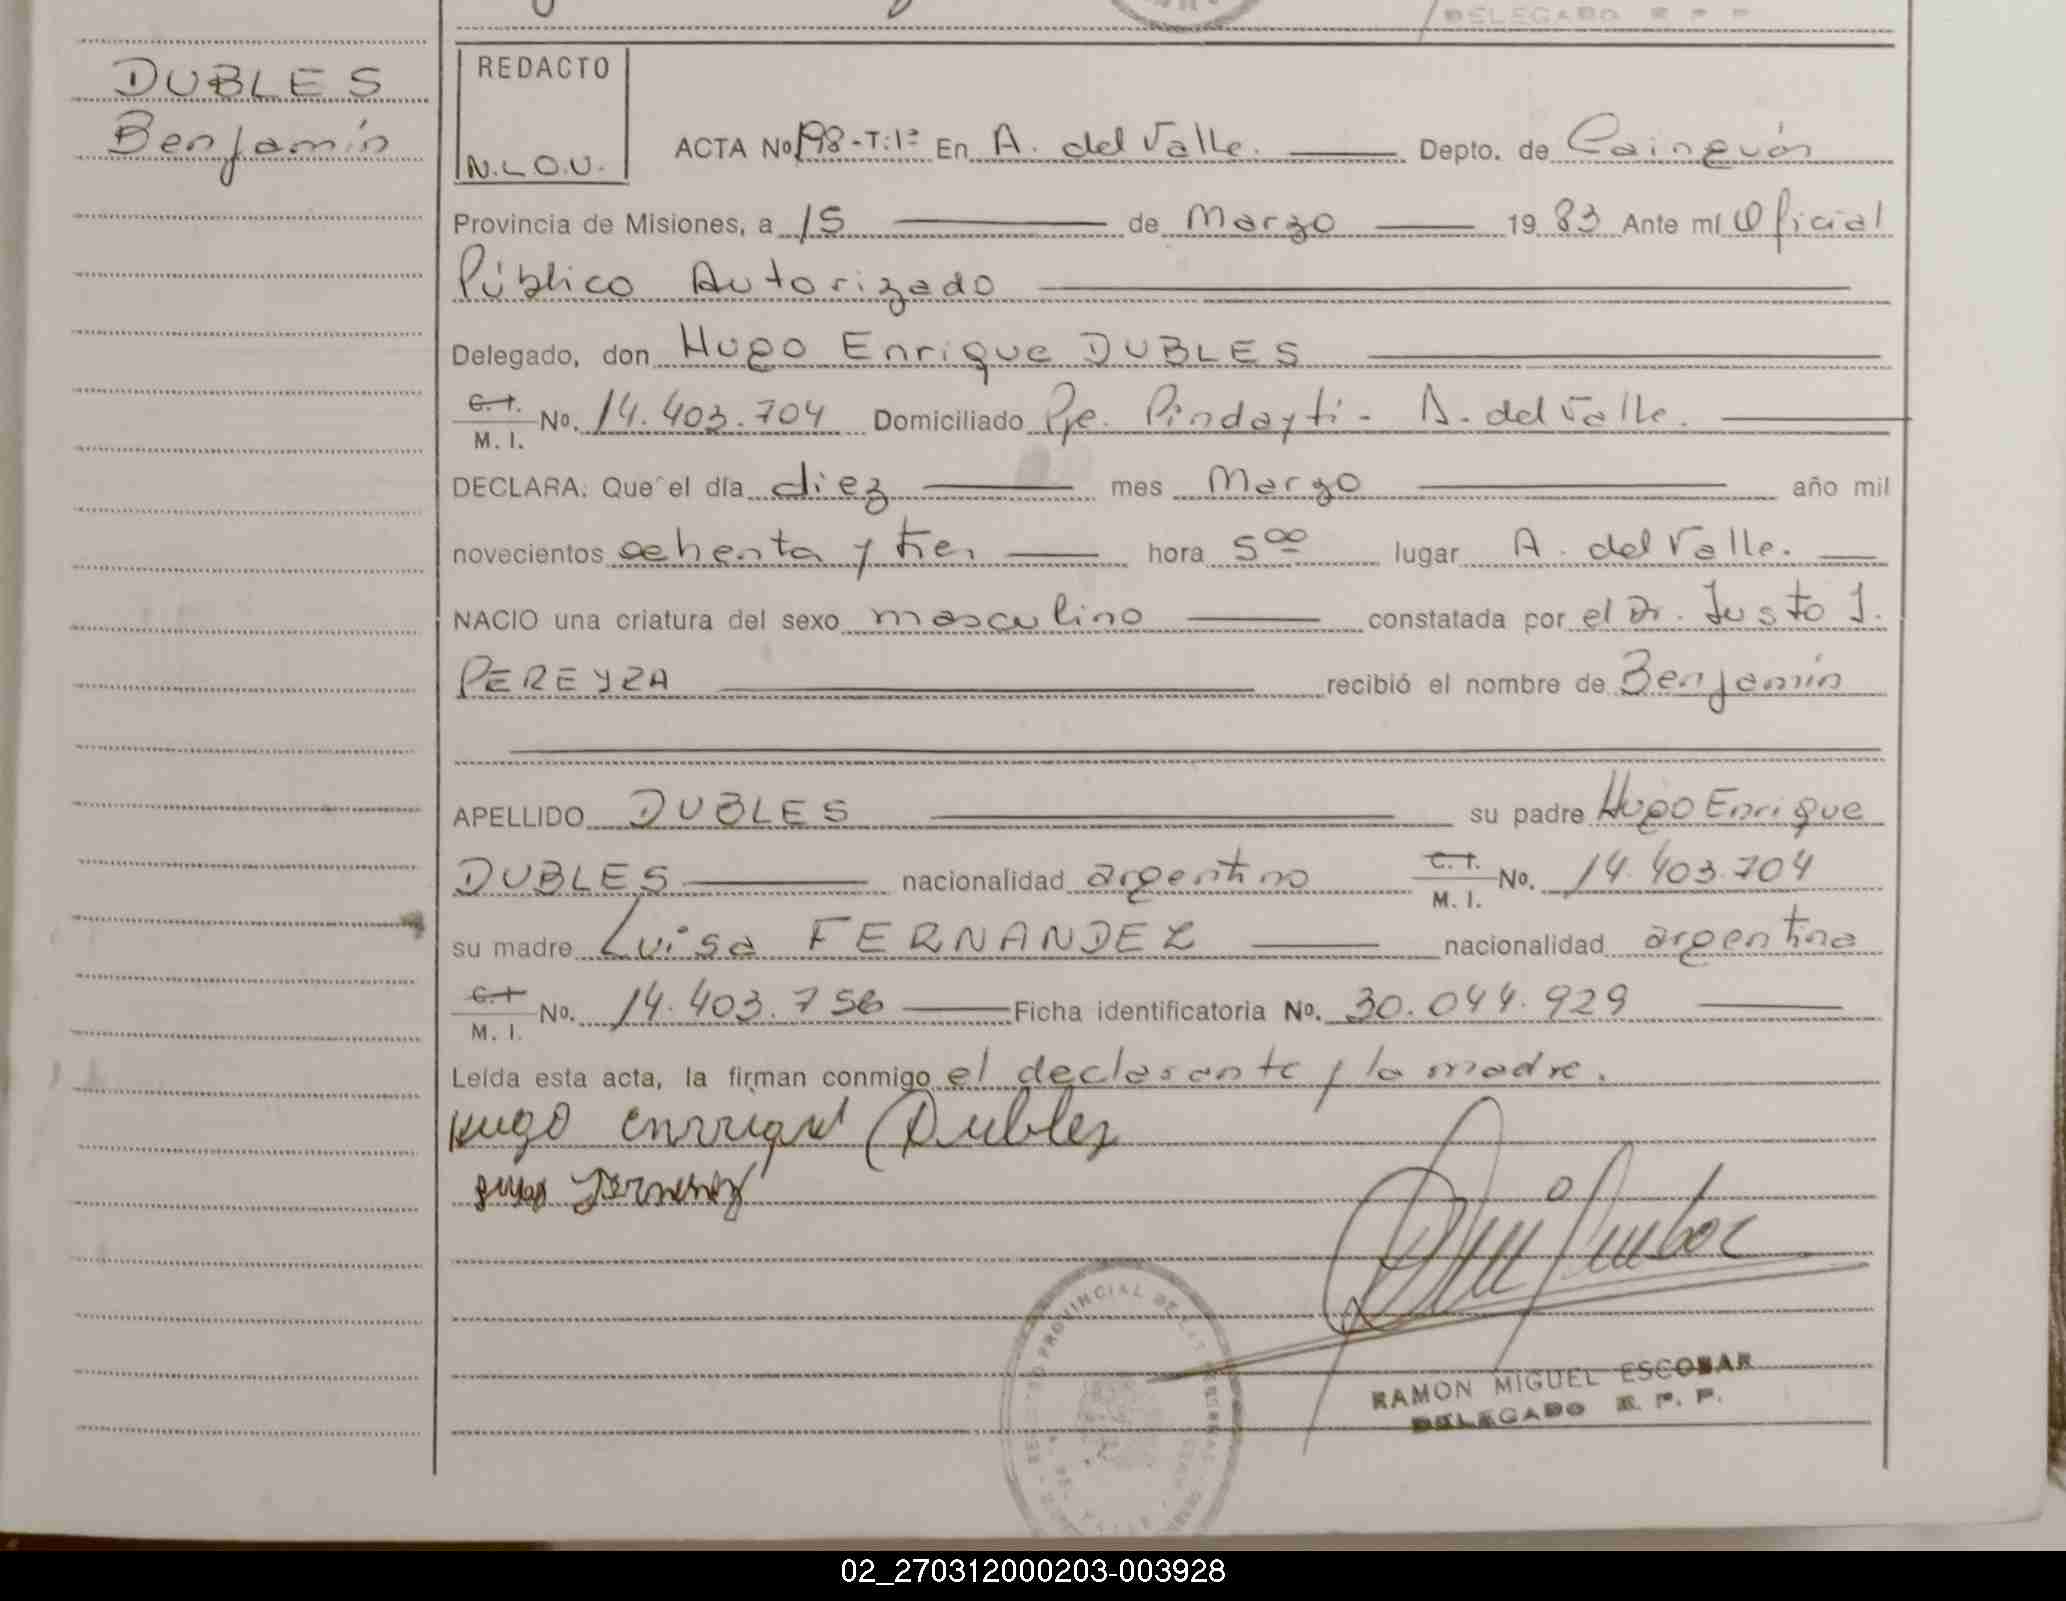 DELEGADO R. P. P.
DUBLES
Benjamín
REDACTO
N.L.O.V.
ACTA No 198-T:1º En A. del Valle. Depto. de Cainguás
Provincia de Misiones, a 15 de Marzo 1983 Ante mí Oficial
Público Autorizado
Delegado, don Hugo Enrique DUBLES
C.I. M.I. No. 14.403.704 Domiciliado Pje. Pindayti - A. del Valle.
DECLARA: Que el día diez mes Marzo año mil
novecientos ochenta y tres hora 5 00 lugar A. del Valle.
NACIO una criatura del sexo masculino constatada por el Dr. Justo J.
PEREYRA recibió el nombre de Benjamín
APELLIDO DUBLES su padre Hugo Enrique
DUBLES nacionalidad argentino C.I. M.I. No. 14.403.704
su madre Luisa FERNANDEZ nacionalidad argentina
C.I. M.I. No. 14.403.756 Ficha identificatoria No. 30.044.929
Leída esta acta, la firman conmigo el declarante y la madre.
Hugo Enrrique Dubles
RAMON MIGUEL ESCOBAR
DELEGADO R. P. P.
PROVINCIAL DE LAS PERSONAS
02_270312000203-003928